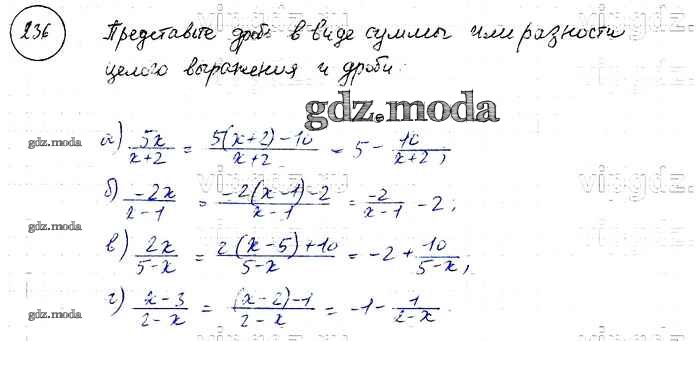 236 Представьте дробь в виде суммы или разности
целого выражения и дроби:
gdz.moda
gdz.moda а) 5x/(x+2) = (5(x+2)-10)/(x+2) = 5 - 10/(x+2);
gdz.moda б) -2x/(x-1) = (-2(x-1)-2)/(x-1) = -2/(x-1) - 2;
gdz.moda в) 2x/(5-x) = (2(x-5)+10)/(5-x) = -2 + 10/(5-x);
gdz.moda г) (x-3)/(2-x) = ((x-2)-1)/(2-x) = -1 - 1/(2-x)